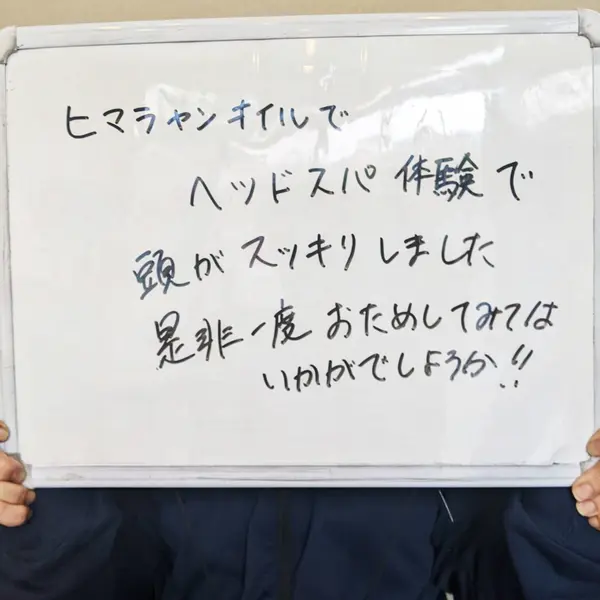 ヒマラヤンオイルで
ヘッドスパ体験で
頭がスッキリしました
是非一度おためしてみては
いかがでしょうか!!